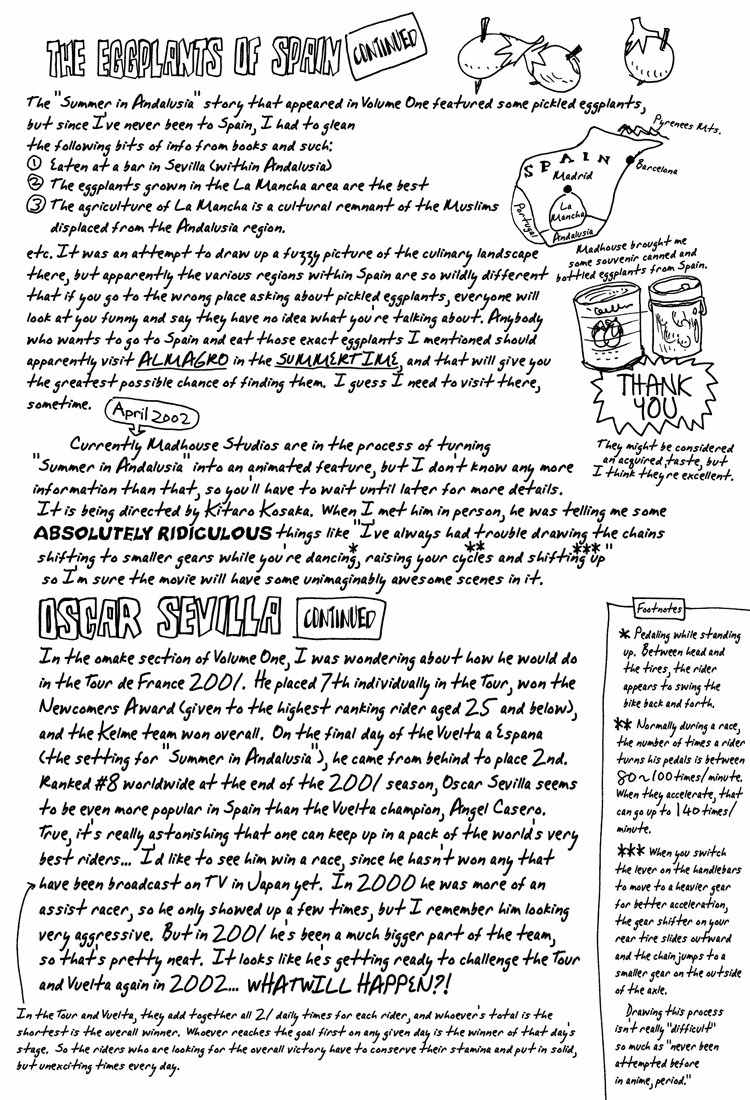 THE EGGPLANTS OF SPAIN CONTINUED
The "Summer in Andalusia" story that appeared in Volume One featured some pickled eggplants,
but since I've never been to Spain, I had to glean
the following bits of info from books and such:
① Eaten at a bar in Sevilla (within Andalusia)
② The eggplants grown in the La Mancha area are the best
③ The agriculture of La Mancha is a cultural remnant of the Muslims
displaced from the Andalusia region.
etc. It was an attempt to draw up a fuzzy picture of the culinary landscape
there, but apparently the various regions within Spain are so wildly different
that if you go to the wrong place asking about pickled eggplants, everyone will
look at you funny and say they have no idea what you're talking about. Anybody
who wants to go to Spain and eat those exact eggplants I mentioned should
apparently visit ALMAGRO in the SUMMERTIME, and that will give you
the greatest possible chance of finding them. I guess I need to visit there,
sometime.
Pyrenees Mts.
SPAIN
Barcelona
Madrid
La
Mancha
Portugal
Andalusia
Madhouse brought me
some souvenir canned and
bottled eggplants from Spain.
THANK
YOU
They might be considered
an acquired taste, but
I think they're excellent.
April 2002
Currently Madhouse Studios are in the process of turning
"Summer in Andalusia" into an animated feature, but I don't know any more
information than that, so you'll have to wait until later for more details.
It is being directed by Kitaro Kosaka. When I met him in person, he was telling me some
ABSOLUTELY RIDICULOUS things like "I've always had trouble drawing the chains
shifting to smaller gears while you're dancing*, raising your cycles** and shifting up***"
so I'm sure the movie will have some unimaginably awesome scenes in it.
OSCAR SEVILLA CONTINUED
In the omake section of Volume One, I was wondering about how he would do
in the Tour de France 2001. He placed 7th individually in the Tour, won the
Newcomers Award (given to the highest ranking rider aged 25 and below),
and the Kelme team won overall. On the final day of the Vuelta a Espana
(the setting for "Summer in Andalusia"), he came from behind to place 2nd.
Ranked #8 worldwide at the end of the 2001 season, Oscar Sevilla seems
to be even more popular in Spain than the Vuelta champion, Angel Casero.
True, it's really astonishing that one can keep up in a pack of the world's very
best riders... I'd like to see him win a race, since he hasn't won any that
have been broadcast on TV in Japan yet. In 2000 he was more of an
assist racer, so he only showed up a few times, but I remember him looking
very aggressive. But in 2001 he's been a much bigger part of the team,
so that's pretty neat. It looks like he's getting ready to challenge the Tour
and Vuelta again in 2002... WHAT WILL HAPPEN?!
In the Tour and Vuelta, they add together all 21 daily times for each rider, and whoever's total is the
shortest is the overall winner. Whoever reaches the goal first on any given day is the winner of that day's
stage. So the riders who are looking for the overall victory have to conserve their stamina and put in solid,
but unexciting times every day.
Footnotes
* Pedaling while standing
up. Between head and
the tires, the rider
appears to swing the
bike back and forth.
** Normally during a race,
the number of times a rider
turns his pedals is between
80~100 times/minute.
When they accelerate, that
can go up to 140 times/
minute.
*** When you switch
the lever on the handlebars
to move to a heavier gear
for better acceleration,
the gear shifter on your
rear tire slides outward
and the chain jumps to a
smaller gear on the outside
of the axle.
Drawing this process
isn't really "difficult"
so much as "never been
attempted before
in anime, period."